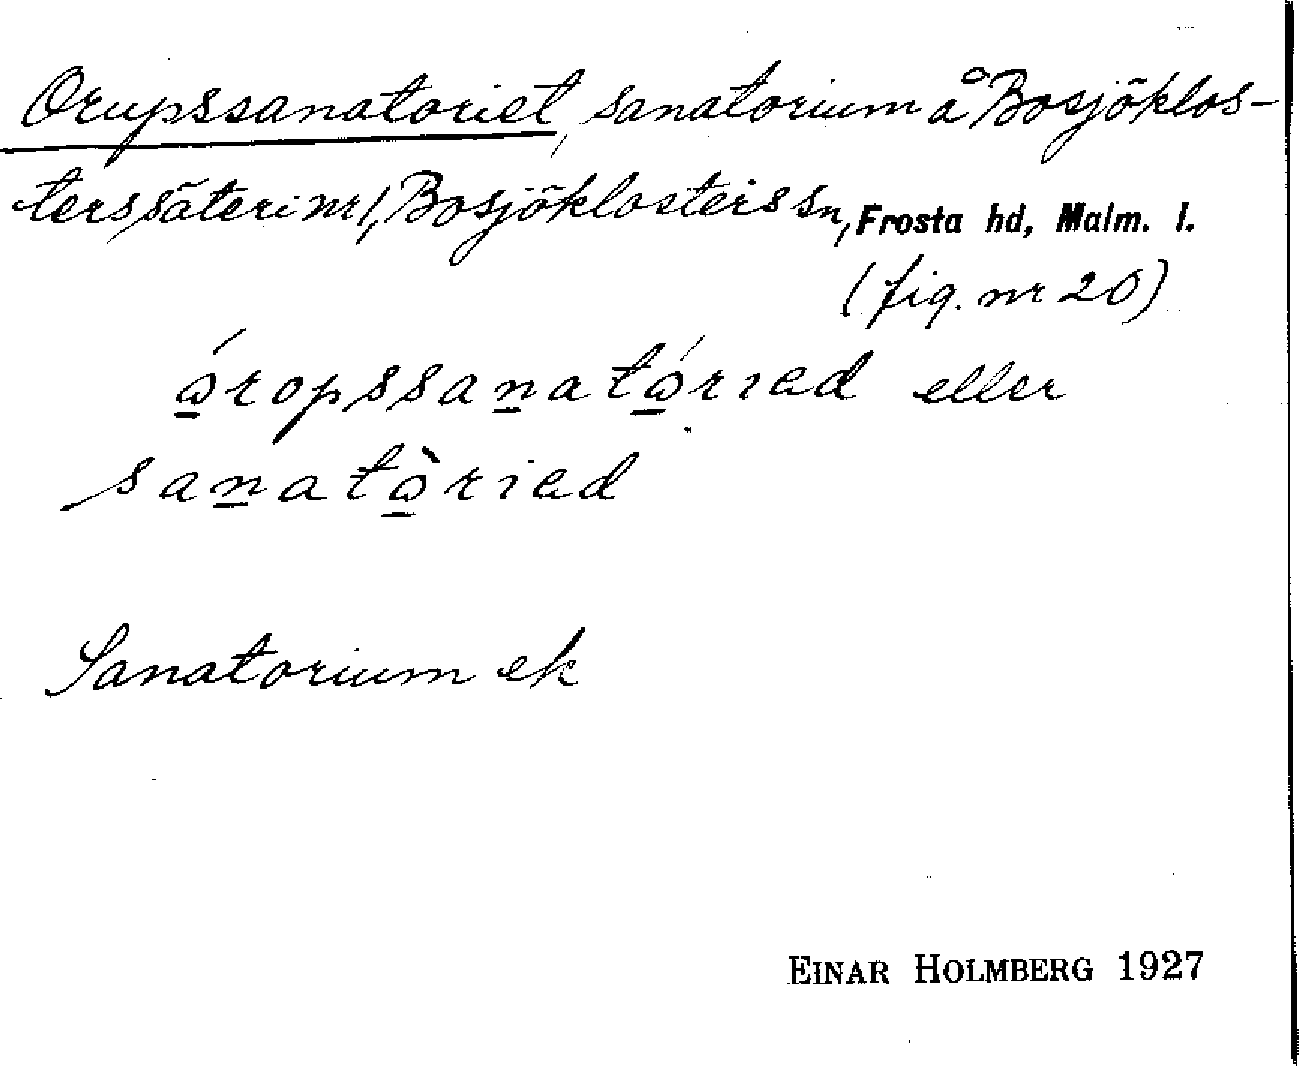 Orupssanatoriet, sanatorium å Bosjöklos-
terssäteri nr 1, Bosjöklosters sn, Frosta hd, Malm. l.
(fig. nr 20)
óropssanatóried eller
sanatòried
Sanatorium ek
EINAR HOLMBERG 1927